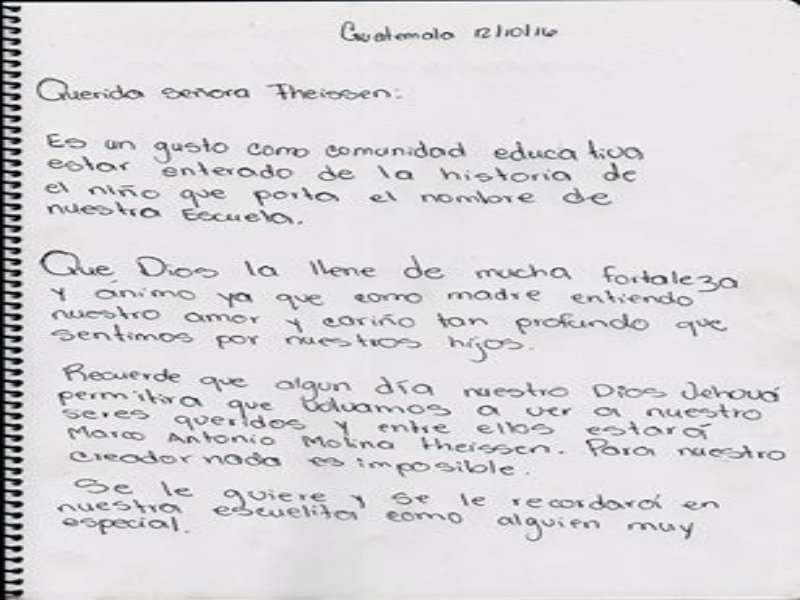 Guatemala 12/10/16
Querida señora Theissen:
Es un gusto como comunidad educativa
estar enterado de la historia de
el niño que porta el nombre de
nuestra Escuela.
Que Dios la llene de mucha fortaleza
y ánimo ya que como madre entiendo
nuestro amor y cariño tan profundo que
sentimos por nuestros hijos.
Recuerde que algun día nuestro Dios Jehová
permitira que volvamos a ver a nuestro
seres queridos y entre ellos estará
Marco Antonio Molina Theissen. Para nuestro
creador nada es imposible.
Se le quiere y se le recordará en
nuestra escuelita como alguien muy
especial.